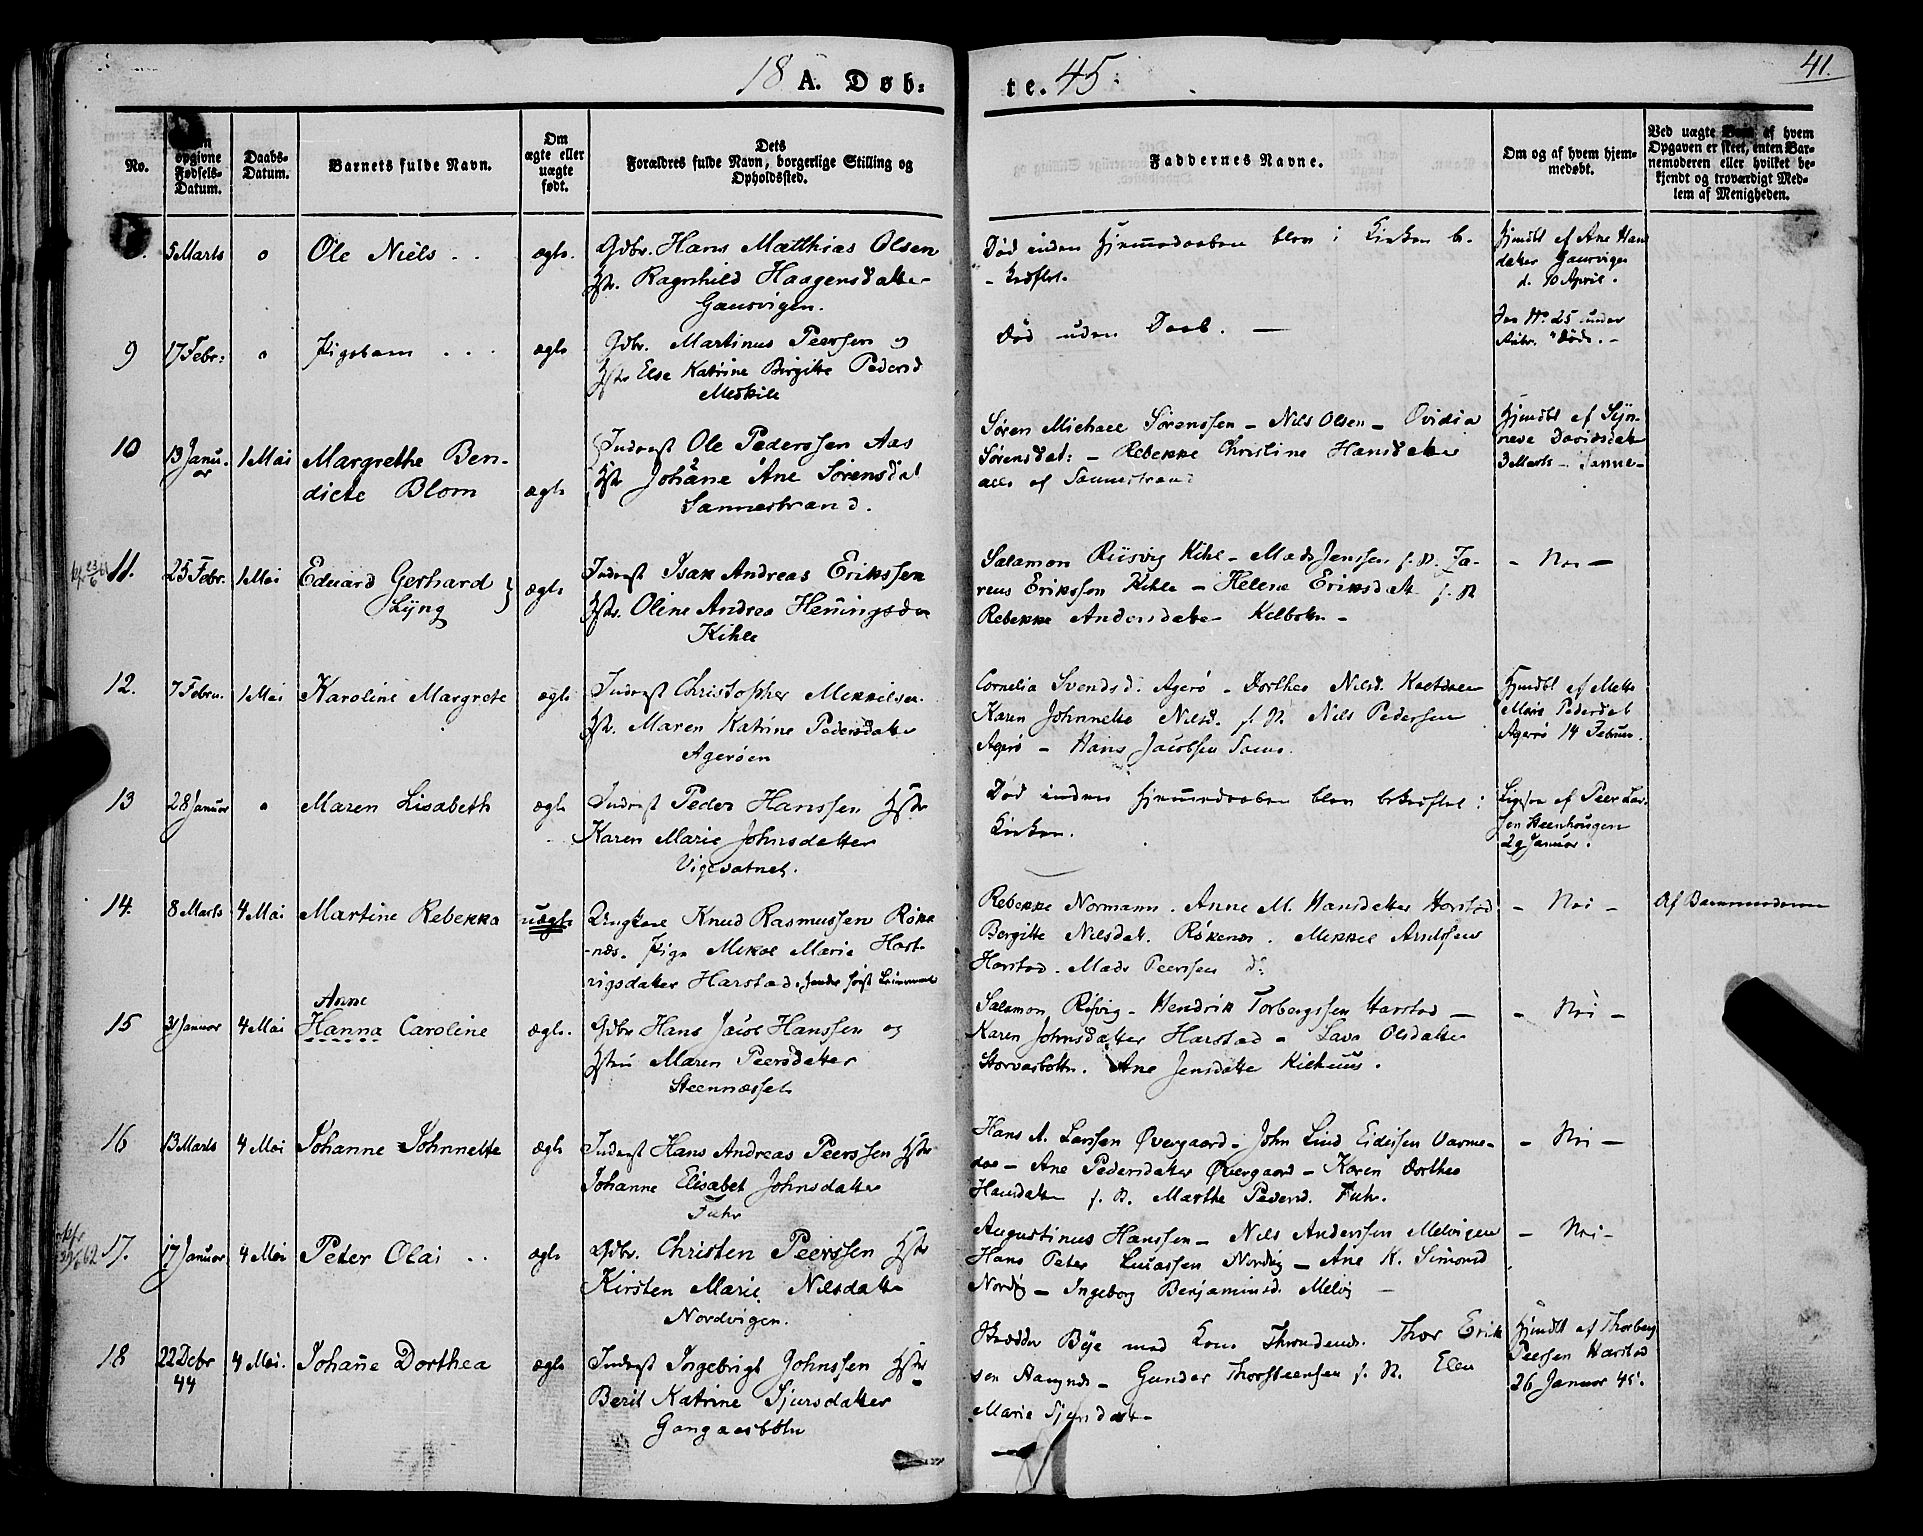 18 A. Døb:
te. 45.
41.
No.
opgivne Fødsels-Datum.
Daabs-Datum.
Barnets fulde Navn.
Om ægte eller uægte født.
Dets Forældres fulde Navn, borgerlige Stilling og Opholdssted.
Faddernes Navne.
Om og af hvem hjemmedøbt.
Ved uægte af hvem Opgaven er skeet, enten Barnemoderen eller hvilket bekjendt og troværdigt Medlem af Menigheden.
5 Marts o Ole Niels . . ægte. Gdbr. Hans Matthias Olsen
Hstr. Ragnhild Haagensdatter
Gausvigen.
Død inden Hjemmedaaben blev i Kirken b-
kræftet.
Hjmdbt af Ane Hans
datter Gausvigen
d. 10 April.
9 17 Febr: o Pigebarn . . . ægte Gdbr. Martinus Peersen og
Hstr Else Katrine Birgitte Pedersd
Meskile
Død uden Daab. —
See No 25 under
"Døde. –
10 13 Janu-
ar 1 Mai Margrethe Ben-
dicte Blom ægte
Inderst Ole Pederssen Aas
Hstr Johane Ane Sørensdat
Sannestrand.
Søren Michael Sørenssen – Nils Olsen – Ovidia
Sørensdat: – Rebekke Christine Hansdatter
alle af Sannestrand
Hjmdbt af Syn-
neve Davidsdat
3 Marts – Sanne–
11. 25 Febr. 1 Mai Eduard Gerhard
Lyng ægte
Inderst Isak Andreas Erikssen
Hstr. Oline Andrea Hemingsda
Kihle
Salamon Riisvig Kihl – Mads Jenssen s. St. Za-
reus Eriksson Kihle – Helene Eriksdatt s. St
Rebekke Andersdatter Kilbotn –
– Nei –
12. 7 Febru. 1 Mai Karoline Margrete ægte Inderst Christopher Mekkelsen
Hstr. Maren Katrine Pedersdatter
Agerøen
Cornelia Svendsd. Agerø – Dorthea Nilsd.
Karen Johnnette Nilsd. s. St. Nils Pedersen
Agerø – Hans Jacobsen
Hjmdbt af Mette
Marie Pedersdat
Agerø 14 Februar.
13 28 Januar o Maren Lisabeth ægte Inderst Peder Hanssen Hstr
Karen Marie Johnsdatter
Vigevatnet.
Død inden Hjemmedaaben blev bekræftet i
Kirken.
Ligesaa af Peer Lar-
sen Steenhougen
29 Januar.
14. 8 Marts 4 Mai Martine Rebekka uægte. Ungkarl Knud Rasmussen Røke
næs. Pige Mikal Marie Hart-
vigsdatter Harstad. første Leiermaal
Rebekke Normann. Anne M. Hansdatter Harstad
Bergitte Nilsdat. Røkenes. Mekkel Arntssen
Harstad. Mads Peerssen d:
– Nei –
Af Barnemoderen
15 31 Januar 4 Mai Anne
Hanna Caroline ægte. Gdbr Hans Jacob Hanssen og
Hstru Maren Peersdatter
Steennæsset
Salamon Risvig – Hendrik Torbergssen Harstad –
Karen Johnsdatter Harstad – Lava Olsdatter
Storvasbotn. Ane Jensdatter Kirhuus.
– Nei –
16 13 Marts 4 Mai Johanne Johnnette ægte Inderst Hans Andreas Peerssen Hstr
Johanne Elisabet Johnsdatter
Fuhr
Hans A. Larssen Øvergaard – John Lind Eidissen Varme-
dal – Ane Pedersdatter Øvergaard – Karen Dorthea
Hansdatter s. St. Marthe Pedersd. Fuhr.
– Nei –
17. 17 Januar 4 Mai Peter Olai . . ægte Gdbr. Christen Peerssen Hstr
Kirsten Marie Nilsdatter
Nordvigen.
Augustinus Hanssen – Nils Anderssen Melvigen
Hans Peter Lucassen Nordvig – Ane K. Simonsd
Nordvig – Ingeborg Benjaminsd. Melvig –
– Nei –
18 22 Decbr
44 4 Mai. Johane Dorthea ægte Inderst Ingebrigt Johnssen Hstr
Beril Katrine Sjursdatter
Gangaasbotn
Skrædder Bye med Kone Throndenes. Thor Erik
sen – Gunder Thorsteensen s. St. Elen
Marie
Hjmdbt af Thorberg
Peersen Harstad
26 Januar 45.